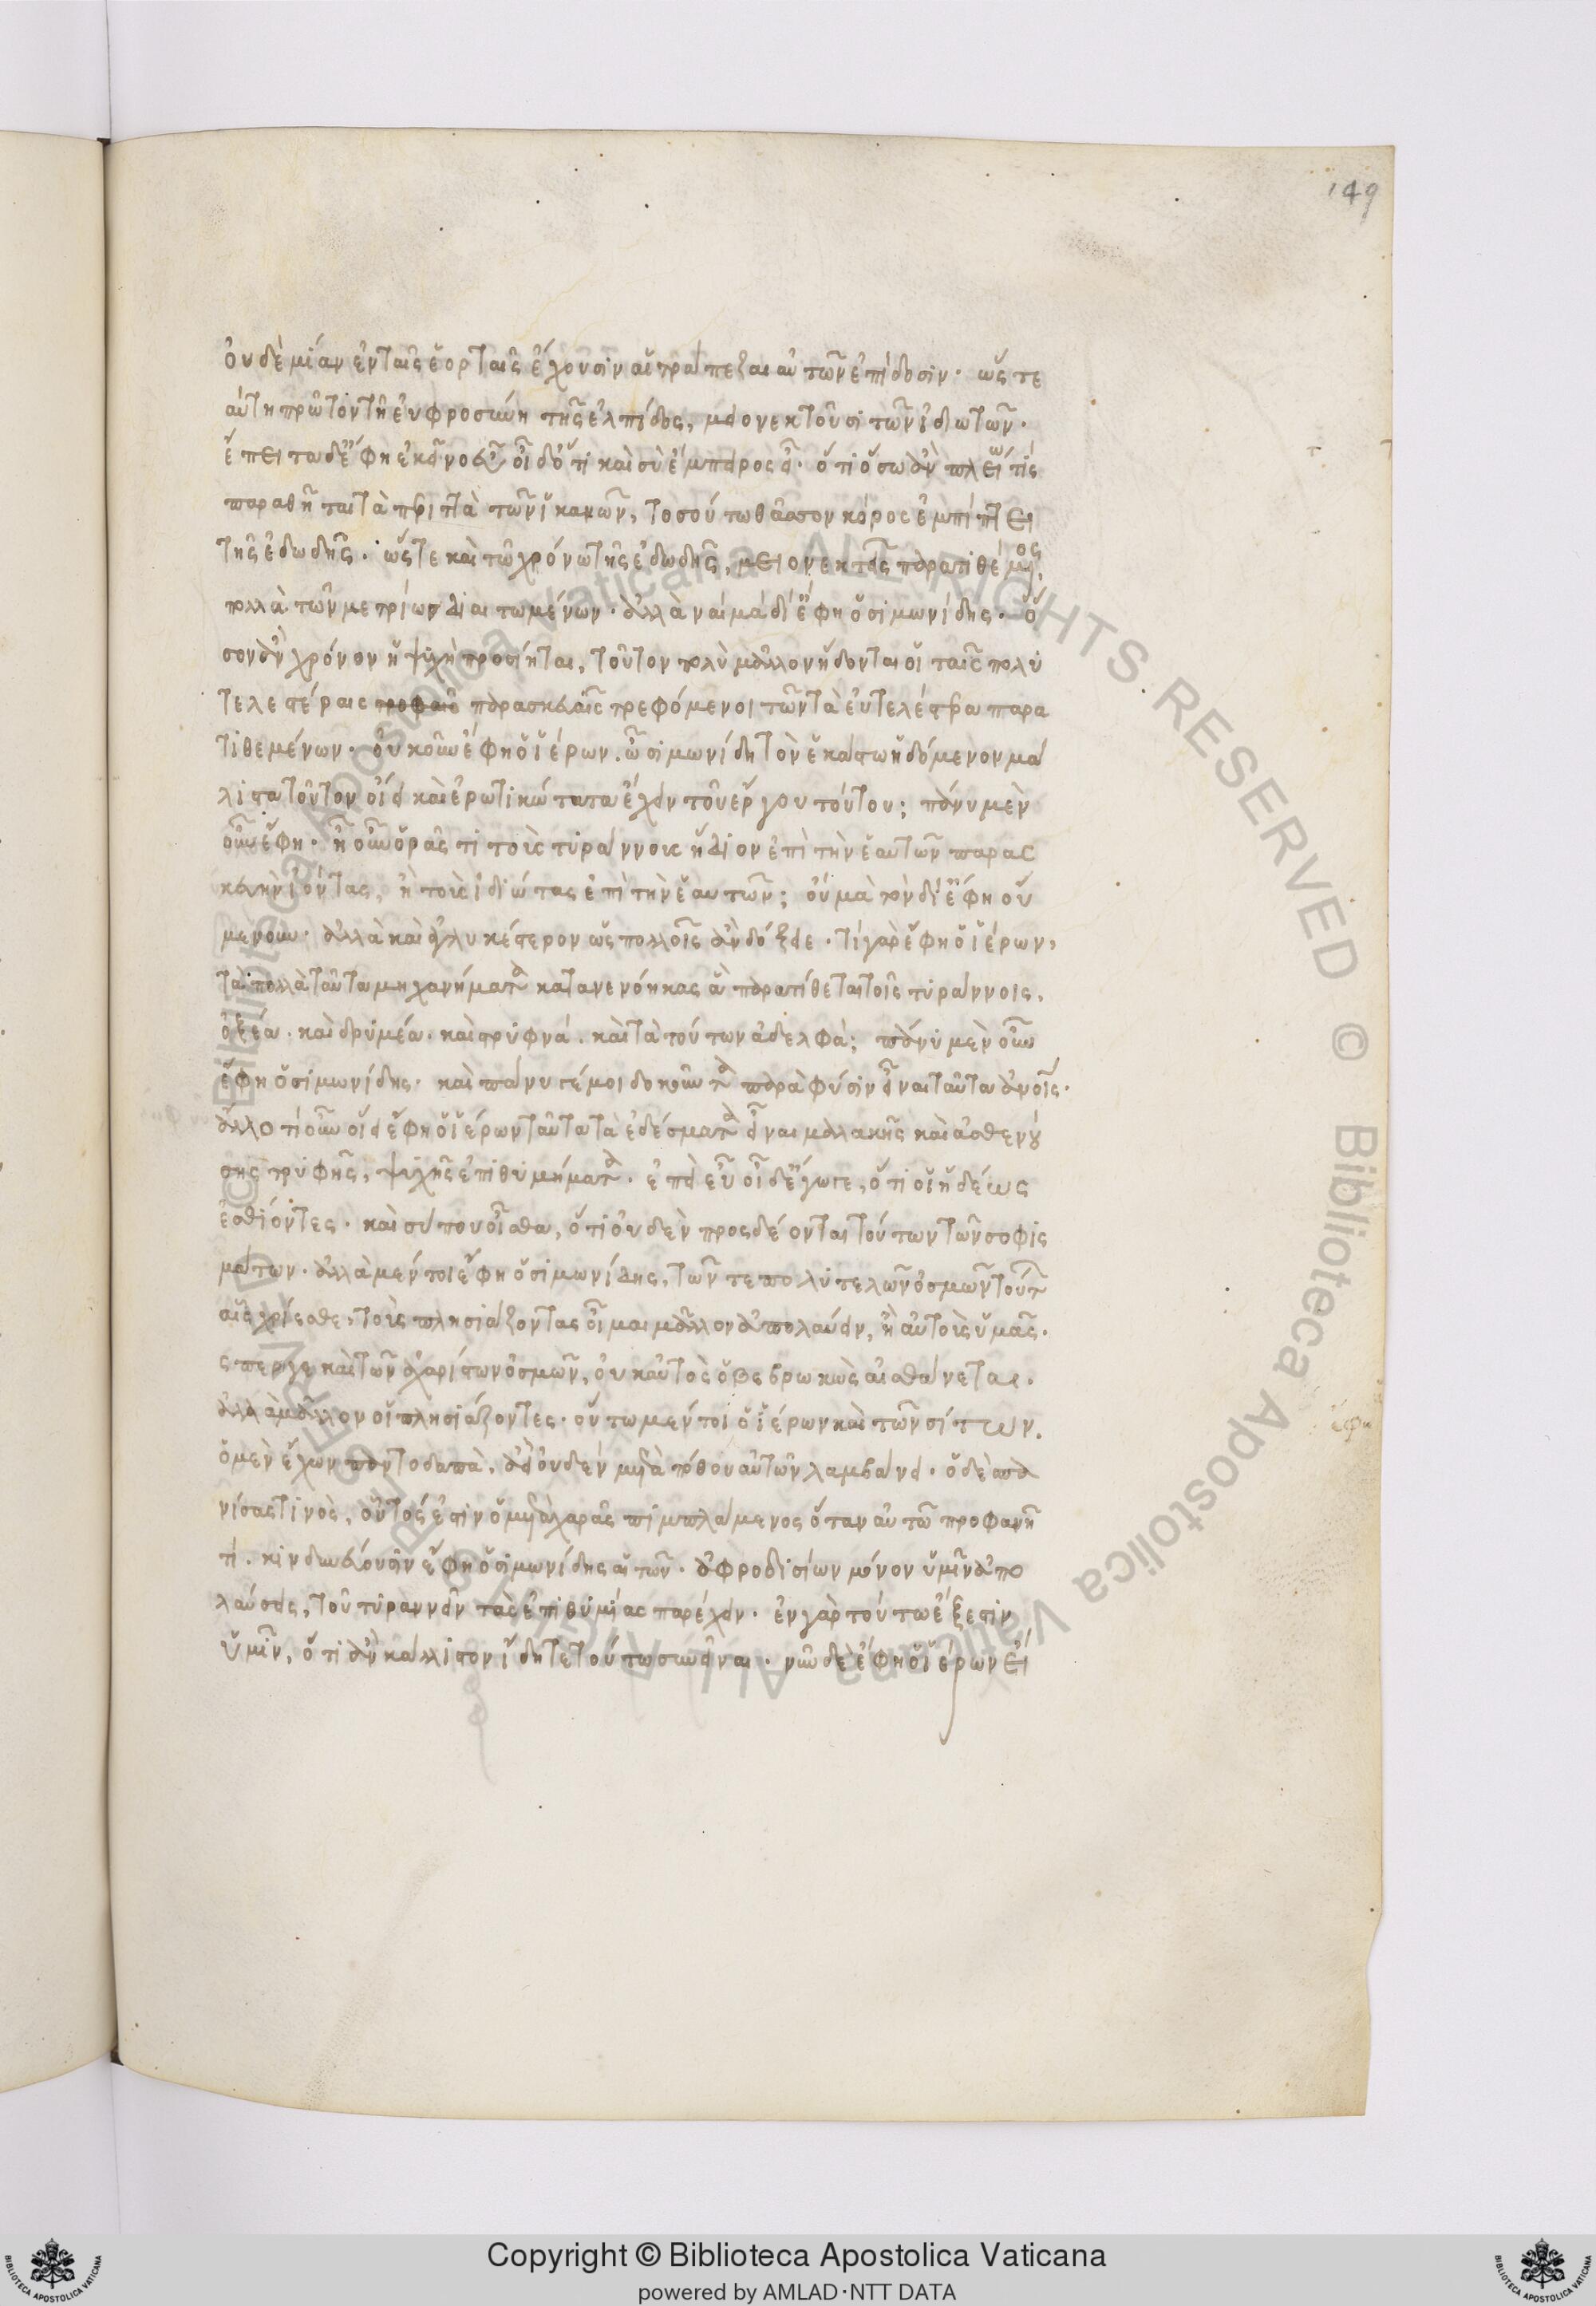 149
ὀυδὲ μίαν ἐν ταῖς ἑορταῖς ἔχουσιν αἱ τράπεζαι αὐτῶν ἐπίδοσιν· ὥστε
αὐτη πρῶτον τῆ ἐυφροσύνη τῆς ἐλπίδος, μειονεκτοῦσι τῶν ἰδιωτῶν·
ἔπειτα δ' ἔφη ἐκεῖνο εὖ οἶδ' ὅτι καὶ σὺ ἔμπειρος εἶ· ὅτι ὅσω ἂν πλείω τίς
παραθῆται τὰ περιττὰ τῶν ἱκανῶν, τοσούτω θᾶσσον κόρος ἐμπίπτει
τῆς ἐδωδῆς· ὥστε καὶ τῶ χρόνω τῆς ἐδωδῆς, μειονεκτεῖ ὁ παρατιθέμενος
πολλὰ τῶν μετρίως διαιτωμένων· ἀλλὰ ναὶ μὰ δί' ἔφη ὁ σιμωνίδης· ὅ
σον ἂν χρόνον ἡ ψυχὴ προσίηται, τοῦτον πολὺ μᾶλλον ἥδονται οἱ ταῖς πολυ
τελεστέραις τροφαῖς παρασκευαῖς τρεφόμενοι τῶν τὰ ἐυτελέστερα παρα
τιθεμένων· ὀυκοῦν ἔφη ὁ ἱέρων. ὦ σιμωνίδη τὸν ἑκάστω ἡδόμενον μά
λιστα τοῦτον οἴει καὶ ἐρωτικώτατα ἔχειν τοῦ ἔργου τούτου; πάνυ μὲν
οὖν ἔφη· ἦ οὖν ὁρᾶς τὶ τοὺς τυράννους ἥδιον ἐπὶ τὴν ἑαυτῶν παρασ
κευὴν ἰόντας, ἢ τοὺς ἰδιώτας ἐπὶ τὴν ἑαυτῶν; οὐ μὰ τὸν δί' ἔφη οὐ
μὲν οὖν· ἀλλὰ καὶ ἀγλυκέστερον ὡς πολλοῖς ἂν δόξειε· τί γὰρ ἔφη ὁ ἱέρων,
τὰ πολλὰ ταῦτα μηχανήματα κατανενόηκας ἃ παρατίθεται τοῖς τυράννοις,
ὀξέα· καὶ δριμέα· καὶ στρυφνά· καὶ τὰ τούτων ἀδελφά; πάνυ μὲν οὖν
ἔφη ὁ σιμωνίδης· καὶ πάνυ γέ μοι δοκοῦντα παρὰ φύσιν εἶναι ταῦτα ἀνοις·
ἄλλο τί οὖν οἴει ἔφη ὁ ἱέρων ταῦτα τὰ ἐδέσματα εἶναι μαλακῆς καὶ ἀσθενού
σης τρυφῆς, ψυχῆς ἐπιθυμήματα· ἐπεὶ εὖ οἶδ' ἔγωγε, ὅτι οἱ ἡδέως
ἐσθίοντες· καὶ σύ που οἶσθα, ὅτι ὀυδὲν προσδέονται τούτων τῶν σοφισ
μάτων· ἀλλὰ μέντοι ἔφη ὁ σιμωνίδης, τῶν τε πολυτελῶν ὀσμῶν τούτων
αἷς χρίεσθε, τοὺς πλησιάζοντας οἶμαι μᾶλλον ἀπολαύειν, ἢ αὐτοὺς ὑμᾶς·
ὥσπερ γε καὶ τῶν ἀχαρίτων ὀσμῶν, ὀυκ αὐτὸς ὁ βεβρωκὼς αἰσθάνεται·
ἀλλὰ μᾶλλον οἱ πλησιάζοντες· οὕτω μέντοι ὁ ἱέρων καὶ τῶν σίτων.
ἔφη
ὁ μὲν ἔχων παντοδαπὰ, ἀεὶ ὀυδὲν μετὰ πόθου αὐτῶν λαμβάνει· ὁ δὲ σπα
νίσας τινὸς, οὗτός ἐστιν ὁ μετὰ χαρᾶς πιμπλάμενος ὅταν αὐτῶ προφανῆ
τί· κινδυνεύουσιν ἔφη ὁ σιμωνίδης αἱ τῶν· ἀφροδισίων μόνον ὑμῖν ἀπο
λαύσεις, τοῦ τυραννεῖν τὰς ἐπιθυμίας παρέχειν· ἐν γὰρ τούτω ἔξεστιν
ὑμῖν, ὅτι ἂν κάλλιστον ἴδητε τούτω συνεῖναι· νῦν δὲ ἔφη ὁ ἱέρων εἴ
Copyright © Biblioteca Apostolica Vaticana
powered by AMLAD·NTT DATA